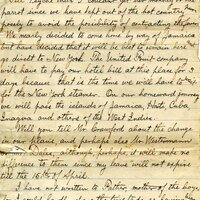 past since we have kept out of the hot country
posely to avoid the possibility of contracting the
We nearly decided to come home by way of Jamaica
but have decided that it will be best to remain here
go direct to New York. The United Fruit company
will have to pay our hotel bill at this place for 3
days because that is the time we will have to
for the New York steamer. On our homeward journey
we will pass the islands of Jamaica, Haiti, Cuba,
Inagua and others of the West Indies.
Will you tell Mr. Crawford about the change
in our plans, and perhaps also Mr. Westermann
or Mr. although, perhaps, it will make no
difference to them since my leave will not expire
till the 16th of April.
I have not written to Father, mother, or the boys